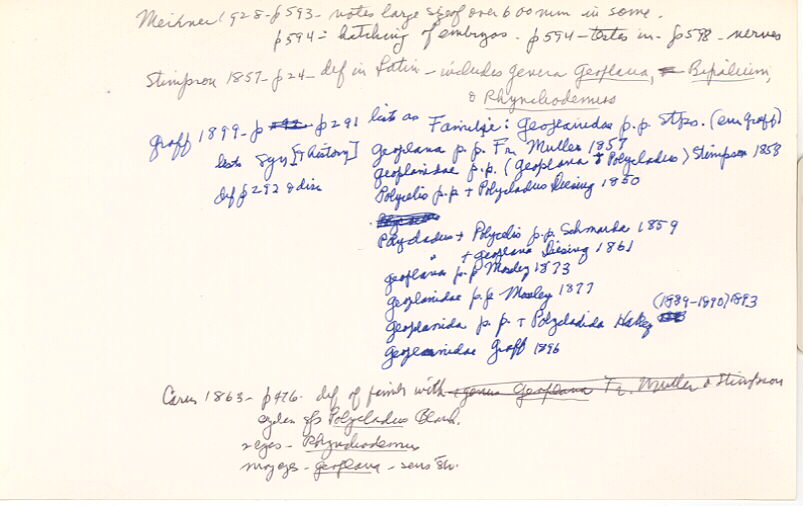 Meixner 1928-p593- notes large size of over 600 mm in some.
p594 = hatching of embryos. p594-testes in- p598- nerves
Stimpson 1857-p24- def in Latin - includes genera Geoplana, Bipalium,
& Rhynchodemus
Graff 1899-p p291 list as Familie: Geoplanidae p.p. Stps. (em Graff)
lists Syn [+ history] Geoplana p.p. Fr. Muller 1857
def p292 & disc Geoplanidae p.p. (Geoplana + Polycladus) Stimpson 1858
Polycelis p.p + Polycladus Diesing 1850
Polycladus + Polycelis p.p. Schmarda 1859
" + Geoplana Diesing 1861
Geoplana p.p Moseley 1873
Geoplanidae p.p Moseley 1877
Geoplanida p.p. + Polycladida Hallez (1889-1890) 1893
Geoplanidae Graff 1896
Carus 1863- p476. def of family with genus Geoplana Fr. Muller & Stimpson
Polycladus Blanch.
2 eyes- Rhynchodemus
many eyes- Geoplana - sens str.